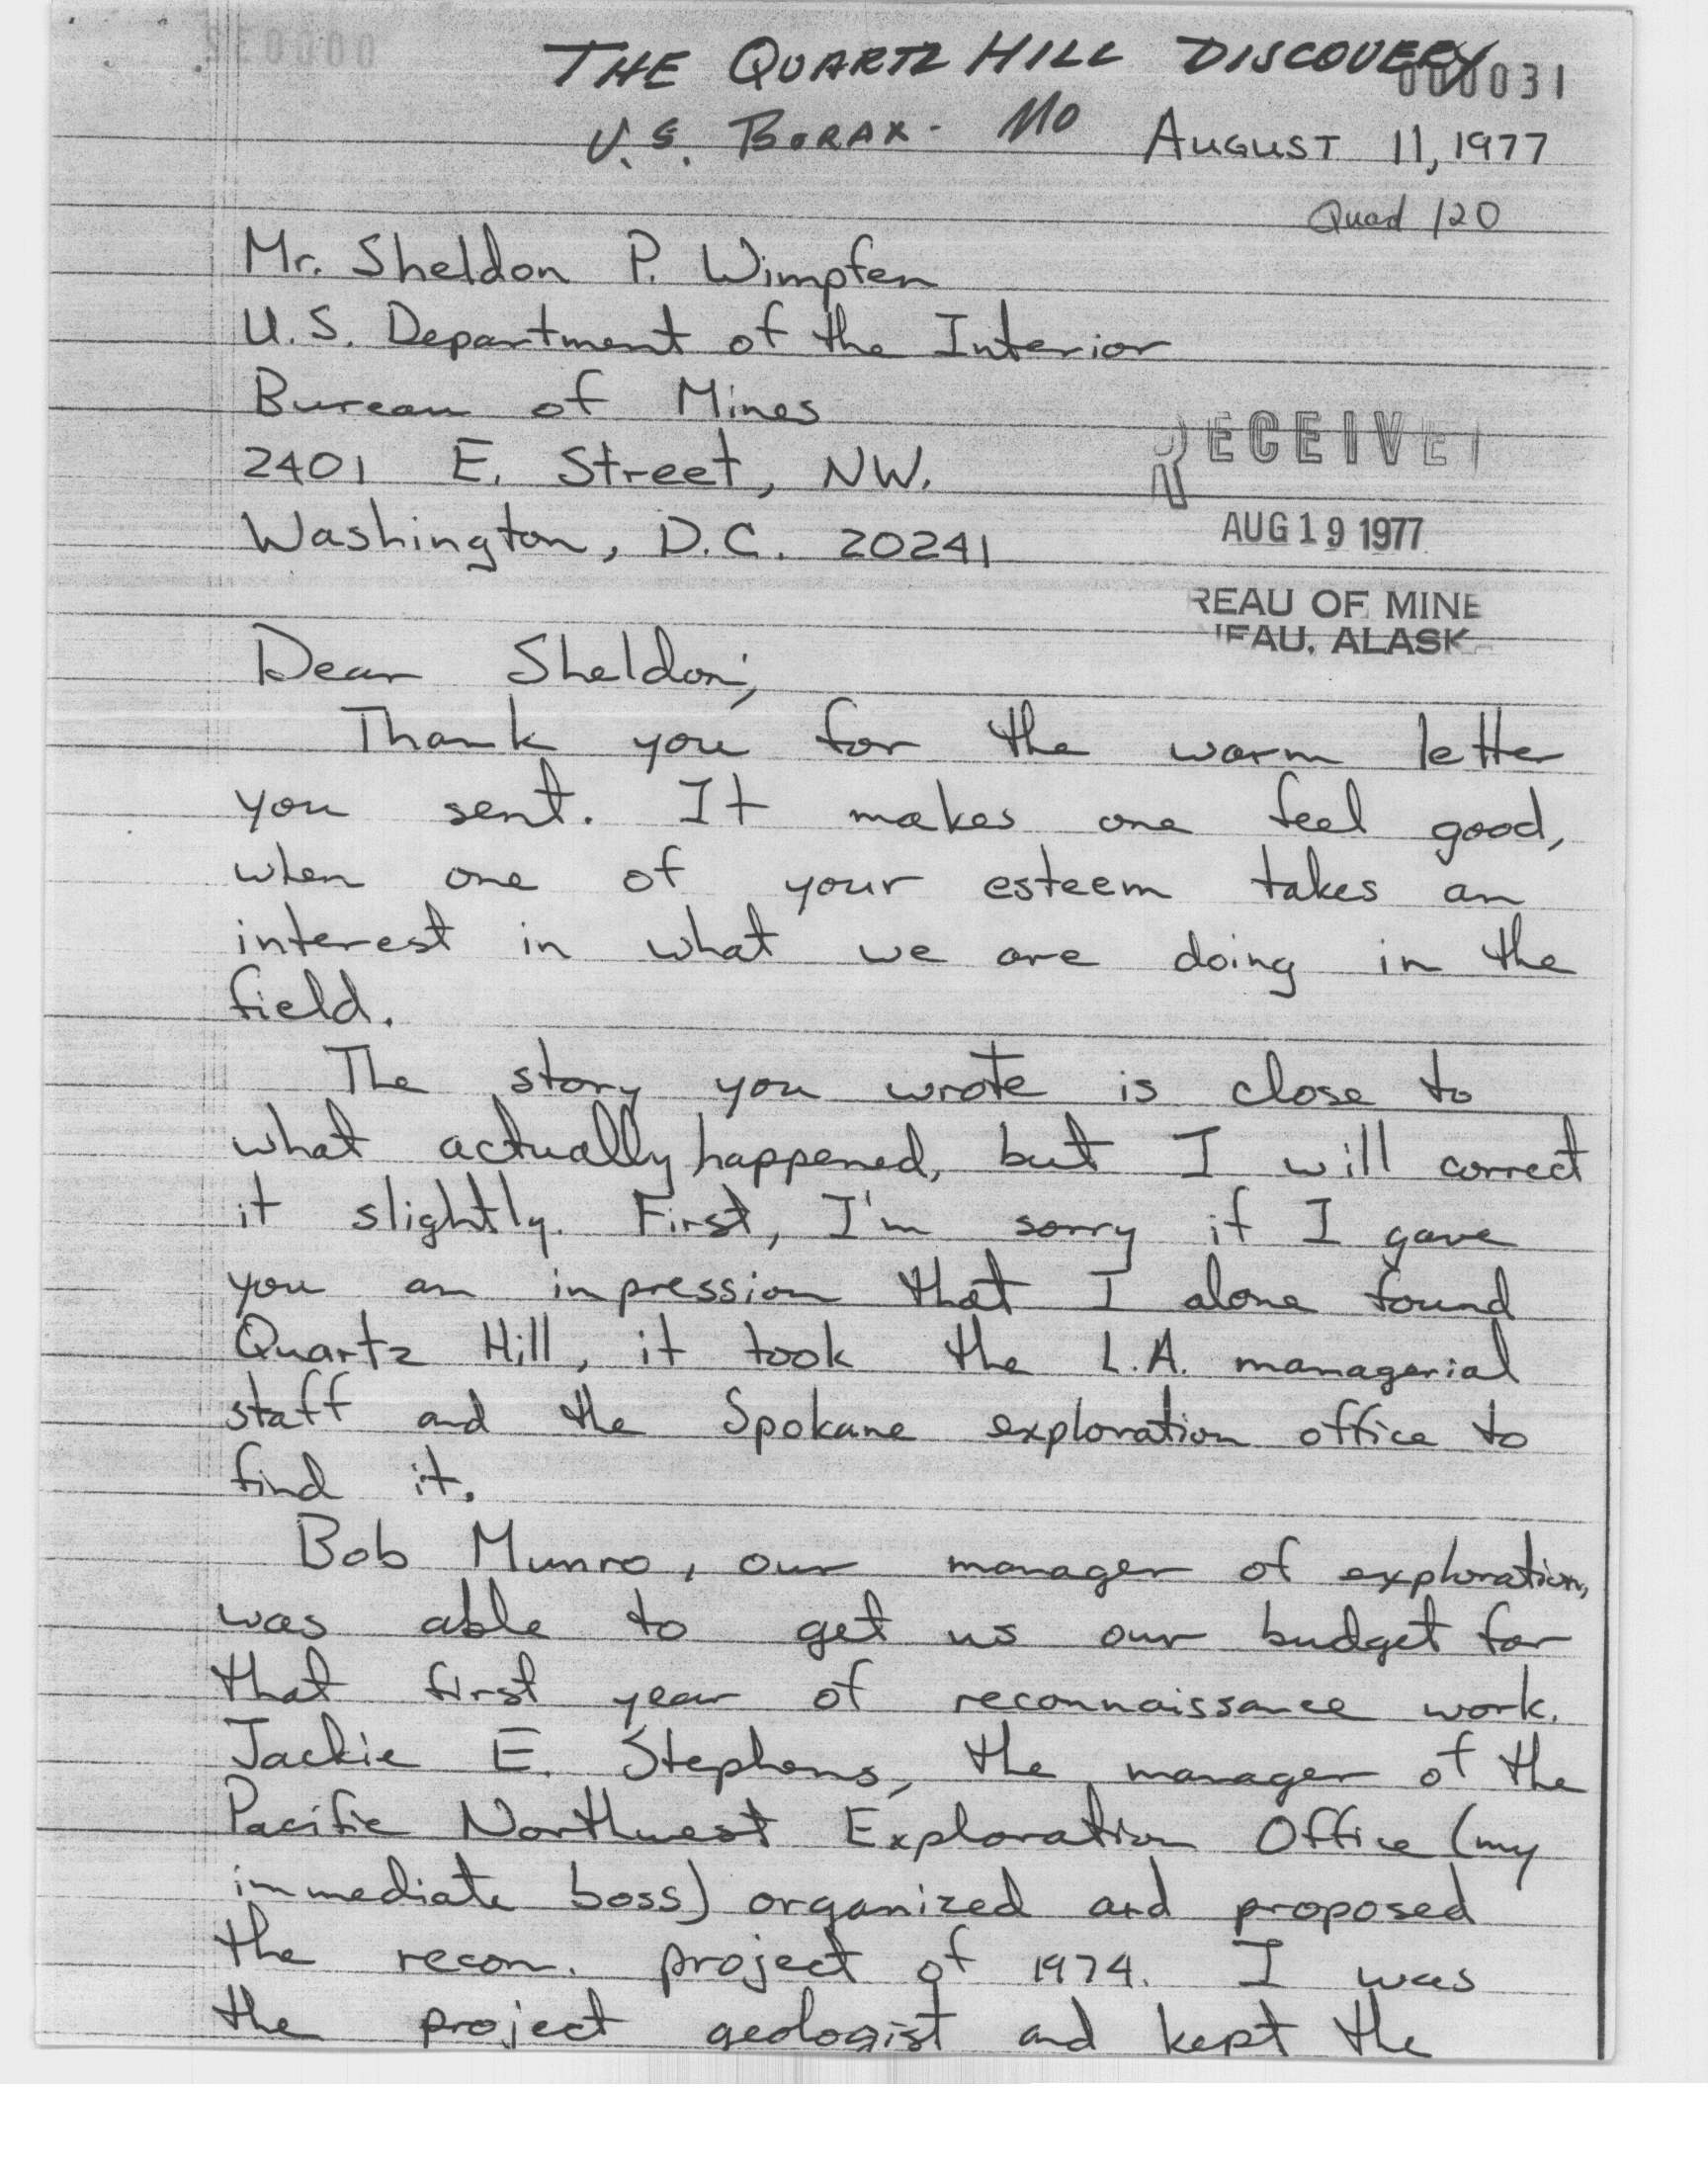 THE QUARTZ HILL DISCOVERY
000031
U.S. BORAX - MO
AUGUST 11, 1977
Quad 120
Mr. Sheldon P. Wimpfen
U.S. Department of the Interior
Bureau of Mines
2401 E. Street, NW.
Washington, D.C. 20241
RECEIVE
AUG 19 1977
REAU OF MINE
EAU, ALASK
Dear Sheldon;
Thank you for the warm letter
you sent. It makes one feel good,
when one of your esteem takes an
interest in what we are doing in the
field.
The story you wrote is close to
what actually happened, but I will correct
it slightly. First, I'm sorry if I gave
you an impression that I alone found
Quartz Hill, it took the L.A. managerial
staff and the Spokane exploration office to
find it.
Bob Munro, our manager of exploration,
was able to get us our budget for
that first year of reconnaissance work.
Jackie E. Stephens, the manager of the
Pacific Northwest Exploration Office (my
immediate boss) organized and proposed
the recon. project of 1974. I was
the project geologist and kept the